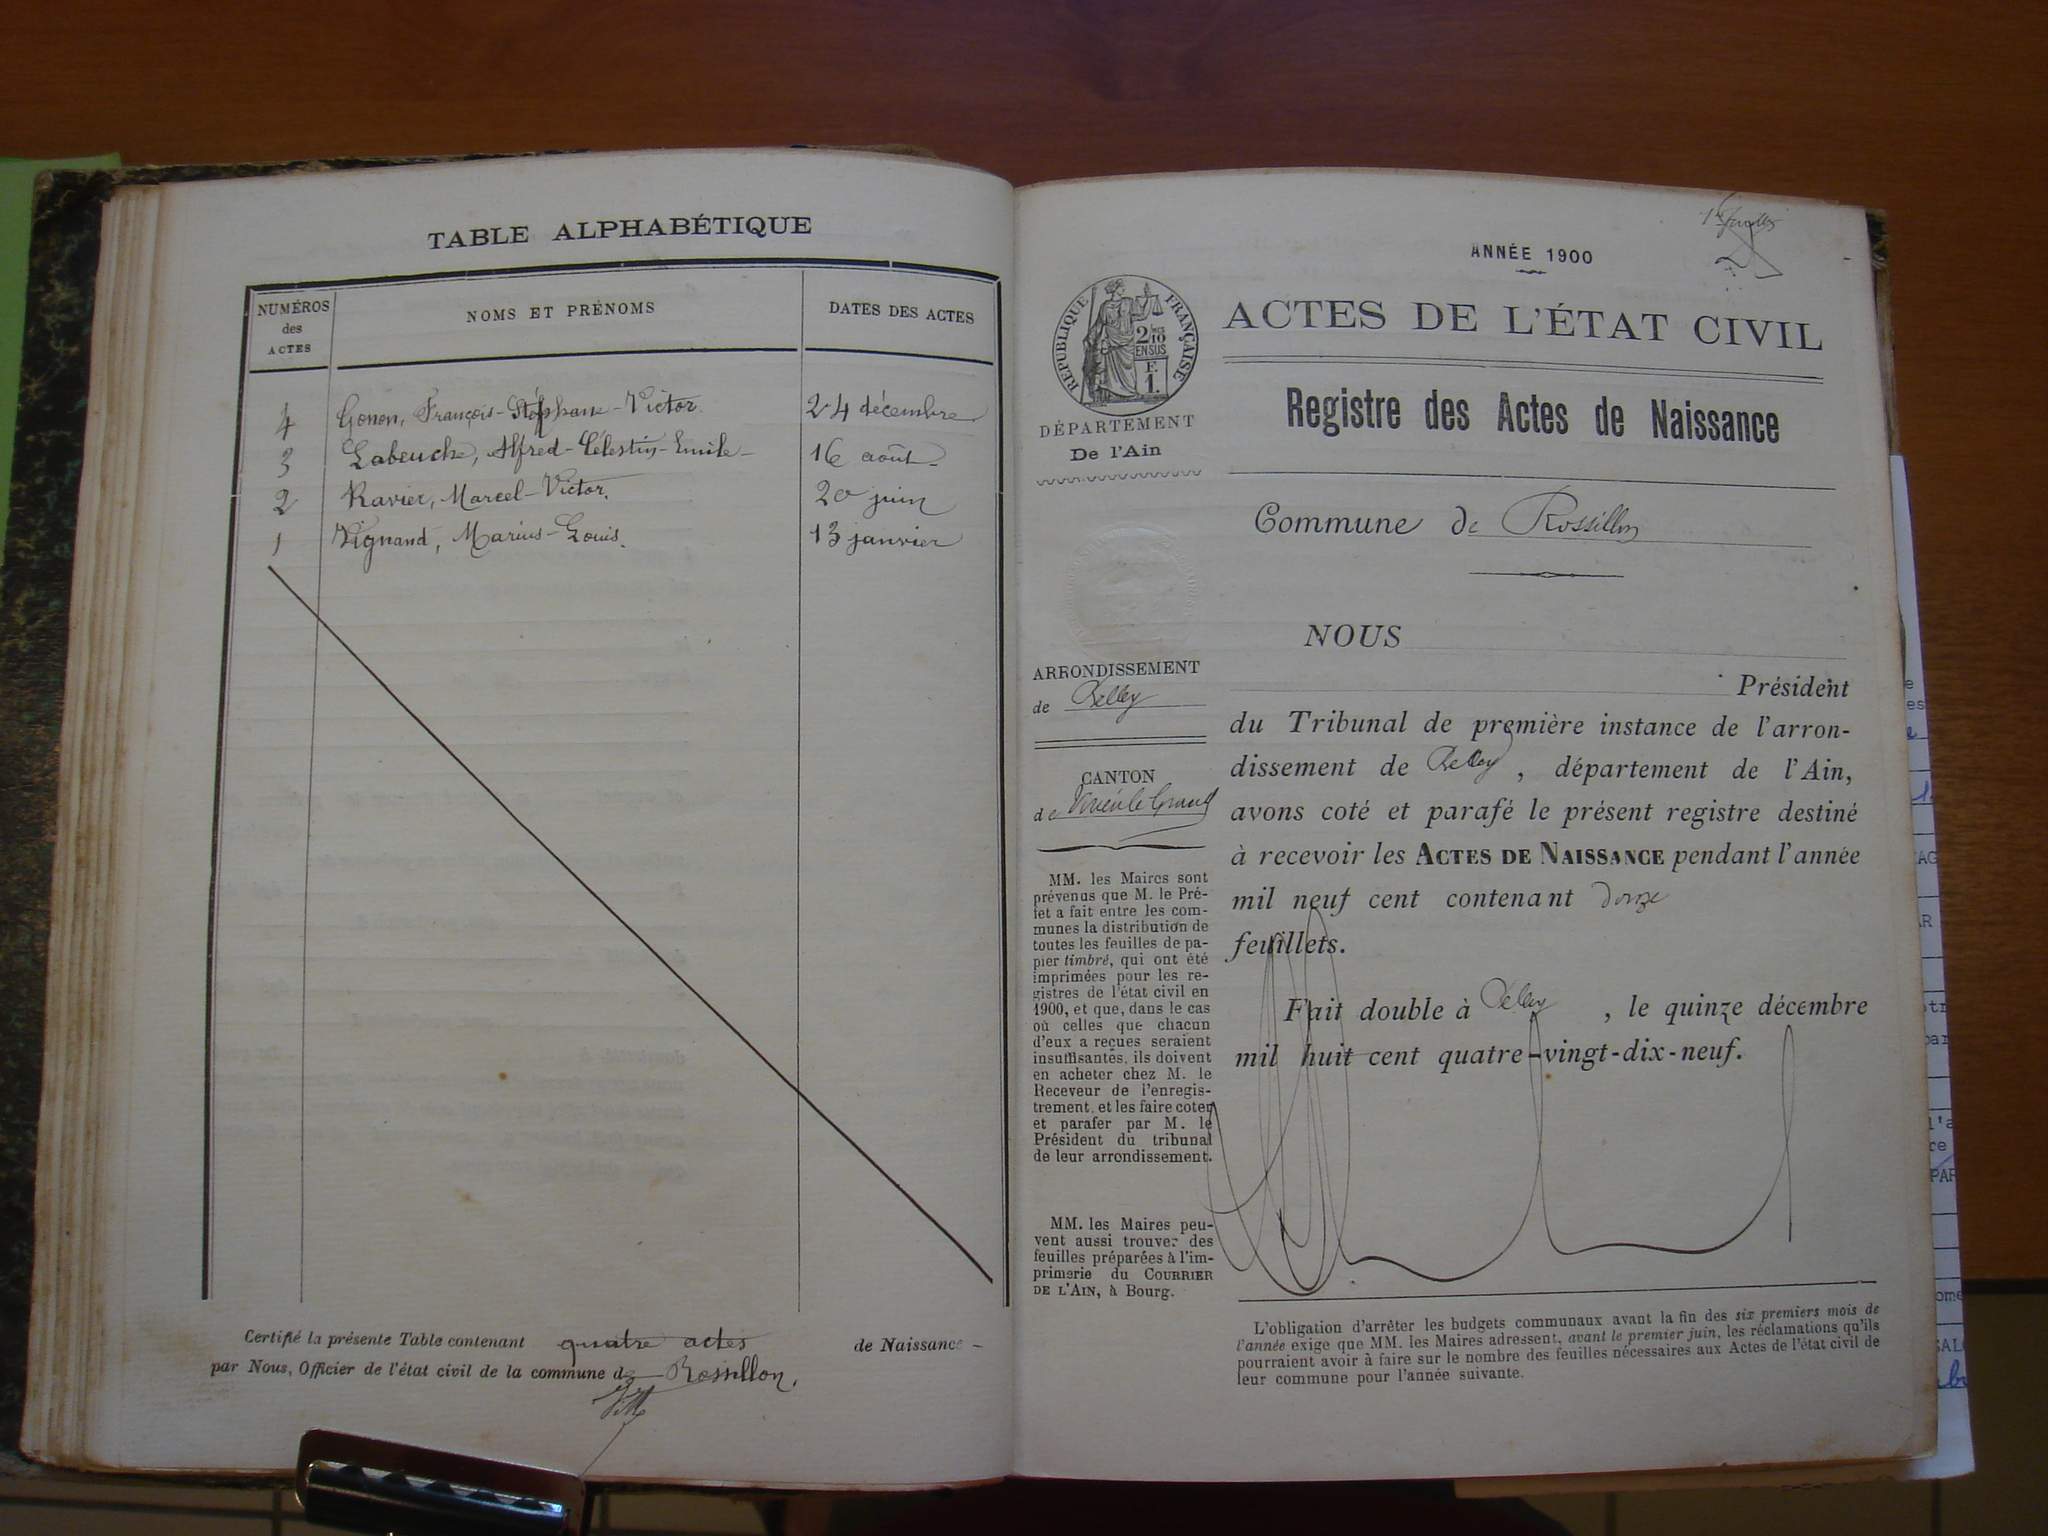 TABLE ALPHABÉTIQUE
NUMÉROS des ACTES
NOMS ET PRÉNOMS
DATES DES ACTES
4 Gonon, François-Stéphane-Victor 24 décembre
3 Labeuche, Alfred-Célestin-Emile 16 août
2 Ravier, Marcel-Victor. 20 juin
1 Vignand, Marius-Louis. 13 janvier
Certifié la présente Table contenant quatre actes de Naissance
par Nous, Officier de l'état civil de la commune de Rossillon.
ANNÉE 1900
RÉPUBLIQUE FRANÇAISE
2/10 EN SUS
F. 1.
ACTES DE L'ÉTAT CIVIL
DÉPARTEMENT
De l'Ain
Registre des Actes de Naissance
Commune de Rossillon
ARRONDISSEMENT
de Belley
CANTON
de Virieu le Grand
MM. les Maires sont
prévenus que M. le Pré-
fet a fait entre les com-
munes la distribution de
toutes les feuilles de pa-
pier timbré, qui ont été
imprimées pour les re-
gistres de l'état civil en
1900, et que, dans le cas
où celles que chacun
d'eux a reçues seraient
insuffisantes, ils doivent
en acheter chez M. le
Receveur de l'enregis-
trement, et les faire coter
et parafer par M. le
Président du tribunal
de leur arrondissement.
MM. les Maires peu-
vent aussi trouver des
feuilles préparées à l'im-
primerie du COURRIER
DE L'AIN, à Bourg.
NOUS
Président
du Tribunal de première instance de l'arron-
dissement de Belley, département de l'Ain,
avons coté et parafé le présent registre destiné
à recevoir les ACTES DE NAISSANCE pendant l'année
mil neuf cent contenant douze
feuillets.
Fait double à Belley, le quinze décembre
mil huit cent quatre-vingt-dix-neuf.
L'obligation d'arrêter les budgets communaux avant la fin des six premiers mois de
l'année exige que MM. les Maires adressent, avant le premier juin, les réclamations qu'ils
pourraient avoir à faire sur le nombre des feuilles nécessaires aux Actes de l'état civil de
leur commune pour l'année suivante.